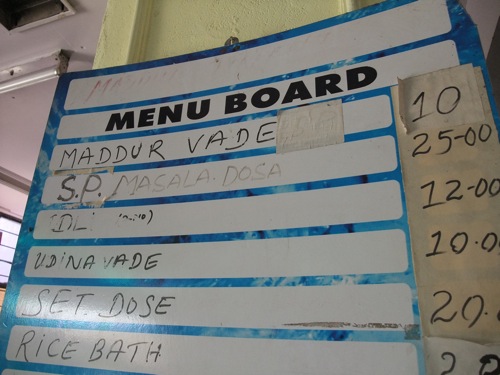 MENU BOARD
MADDUR VADE 10
S.P. MASALA. DOSA 25-00
IDLI 12-00
UDINA VADE 10.0
SET. DOSE 20.
RICE BATH